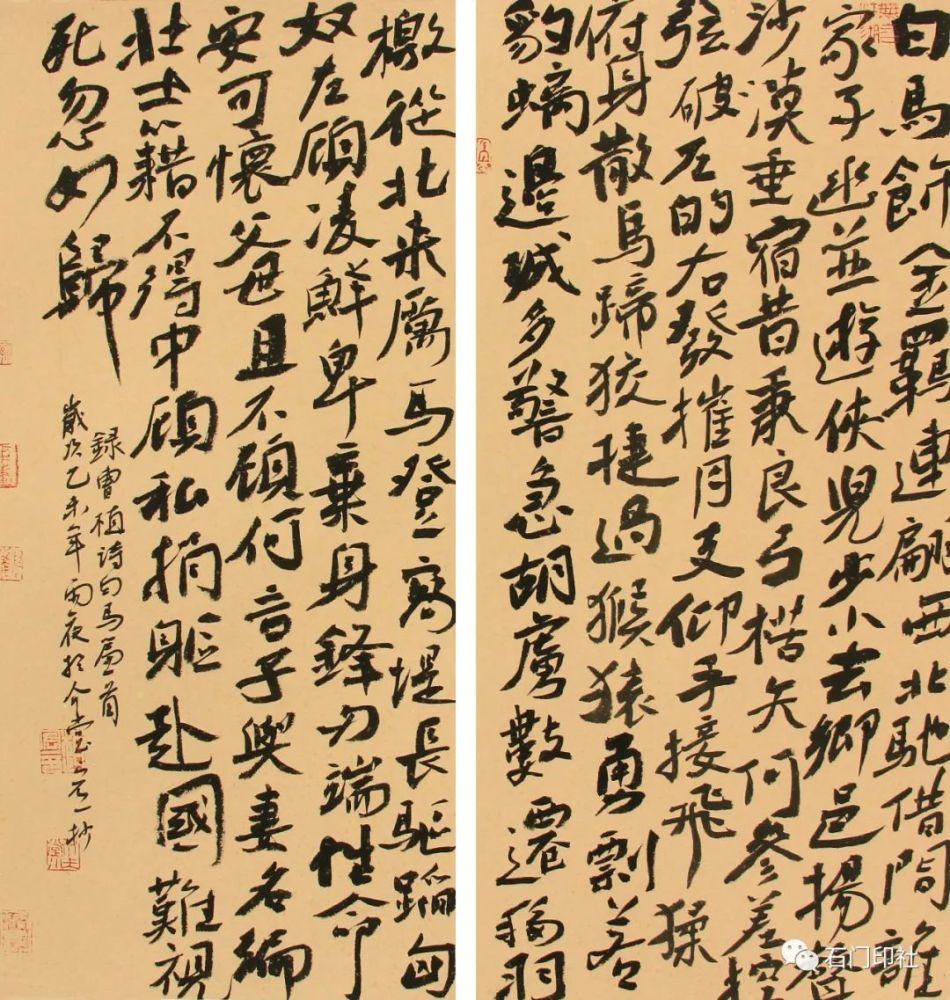 白馬飾金羈連翩西北馳借問誰
家子幽並遊俠兒少小去鄉邑揚聲
沙漠垂宿昔秉良弓楛矢何參差控
弦破左的右發摧月支仰手接飛猱
俯身散馬蹄狡捷過猴猿勇剽若
豹螭邊城多警急胡虜數遷移羽
檄從北來厲馬登高堤長驅蹈匈
奴左顧凌鮮卑棄身鋒刃端性命
安可懷父母且不顧何言子與妻名編
壯士籍不得中顧私捐軀赴國難視
死忽如歸
錄曹植詩白馬篇首
歲次乙未年雨夜於 抄
石门印社